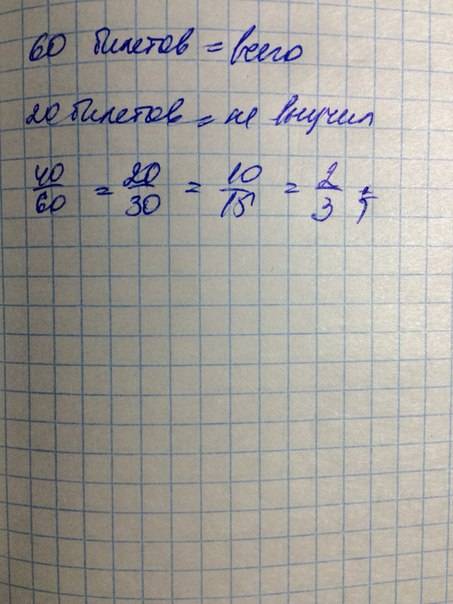 60 билетов = всего
20 билетов = не выучил
40/60 = 20/30 = 10/15 = 2/3